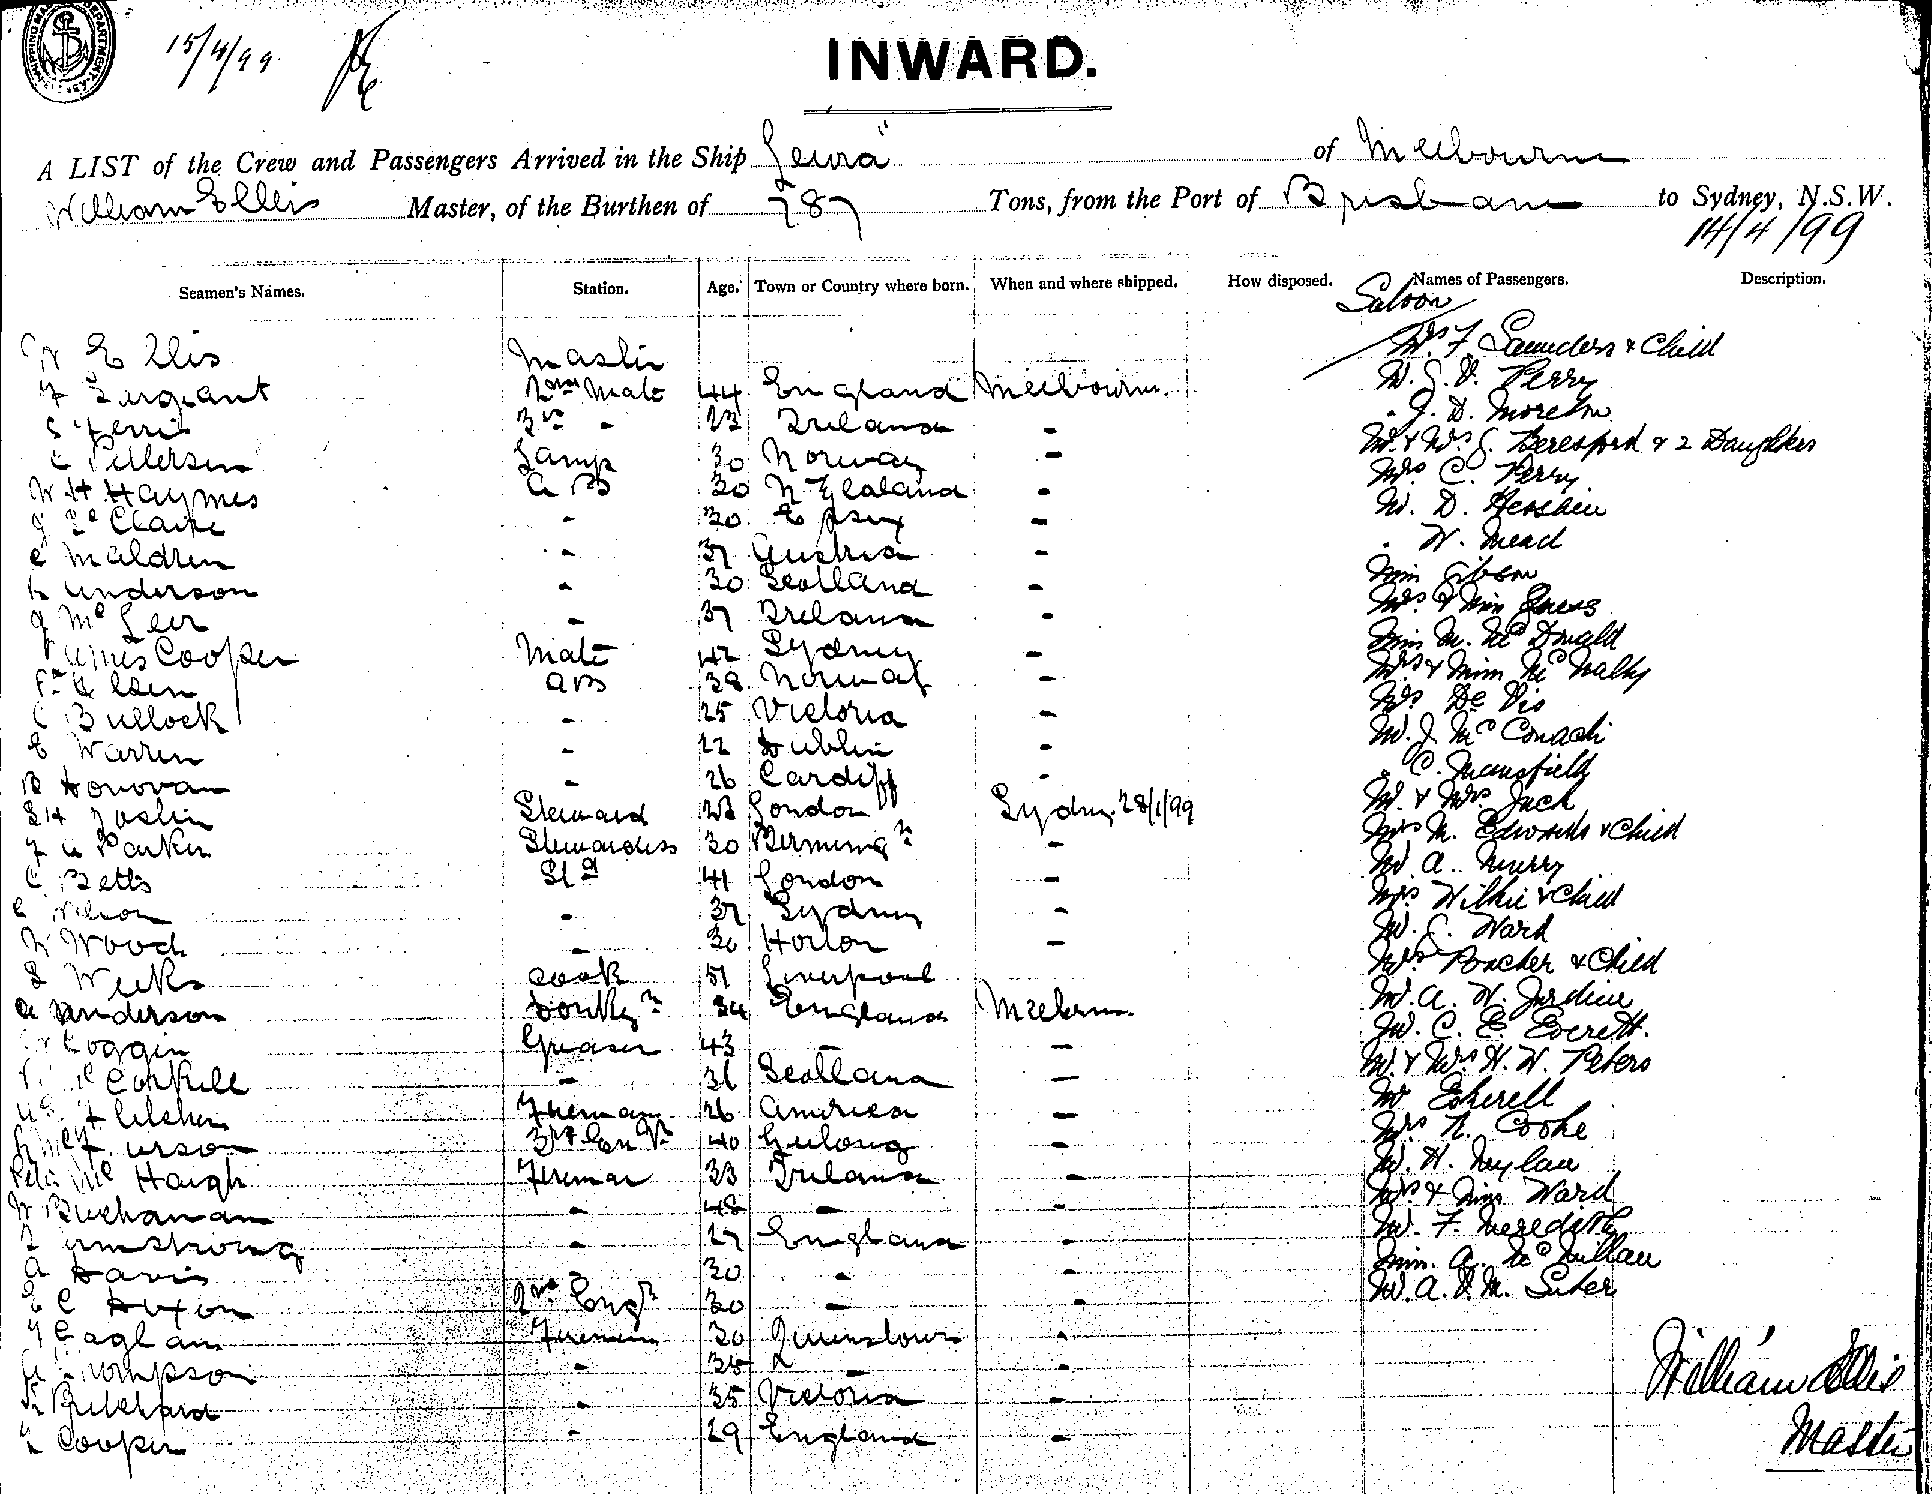 15/4/99
INWARD.
A LIST of the Crew and Passengers Arrived in the Ship "Leura" of Melbourne
William Ellis Master, of the Burthen of 787 Tons, from the Port of Brisbane to Sydney, N.S.W.
14/4/99
Seamen's Names. Station. Age. Town or Country where born. When and where shipped. How disposed. Names of Passengers. Description.
Saloon
W Ellis Master Mrs F. Saunders & Child
F Sargant 2nd Mate 44 England Melbourne Perry
3rd - 23 Ireland - J. D. Moreton
C Pettersen Lamp 30 Norway - Mr & Mrs J. Beresford & 2 Daughters
W H Haymes A B 30 N Zealand - Mrs C. Perry
Le Claire - 30 - Mr. D.
C Maldren - 37 Austria - W. Mead
Anderson - 30 Scotland - Miss Gibson
Mc - 37 Ireland - Mrs & Miss
James Cooper Mate 42 Sydney - Miss M. McDonald
Olsen A B 38 Norway - Mrs & Miss McNally
C Bullock - 25 Victoria - Mrs De Vis
E Warren - 22 Dublin - Mr. J. McConachi
Donovan - 26 Cardiff - C. Mansfield
S H Joslin Steward 23 London Sydney 28/1/99 Mr. & Mrs Jack
Parker Stewardess 30 Birmingm - Mrs M. Edwards & Child
C Betts Std 41 London - Mr A. Murry
Wilson - 37 Sydney - Mrs Wilkie & Child
W Wood - 30 - Mr. Ward
S Weeks Cook 51 Liverpool Mrs Poacher & Child
A Anderson Donkeyn 34 England Melbrne Mr. A. W. Jardine
Coggin Greaser 43 - - Mr. C. E. Everett.
Corkill - 31 Scotland - Mr & Mrs H. W. Peters
Fireman 26 America - Mr
3rd Engr 40 Geelong - Mrs N. Cooke
Peter McHaigh Fireman 33 Ireland - Mr. H. Nylan
W Buchanan - 48 - Mrs & Miss Ward
Armstrong - 27 England - Mr. F. Meredith
A Davis - 30 - - Miss. A. McMillan
C Dixon 2nd Engr 30 - - Mr. A. M.
Fireman 30 Queenstown -
Thompson - -
Pritchard - 35 Victoria -
Cooper - 29 England -
William Ellis
Master